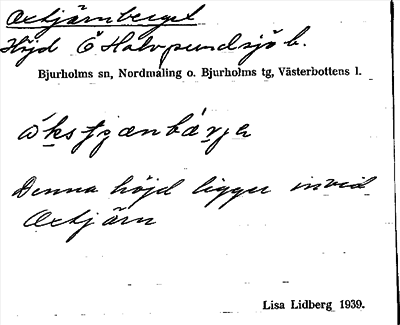 Oxtjärnberget
Höjd Ö Halvpundsjö b.
Bjurholms sn, Nordmaling o. Bjurholms tg, Västerbottens l.
Denna höjd ligger invid
Oxtjärn
Lisa Lidberg 1939.